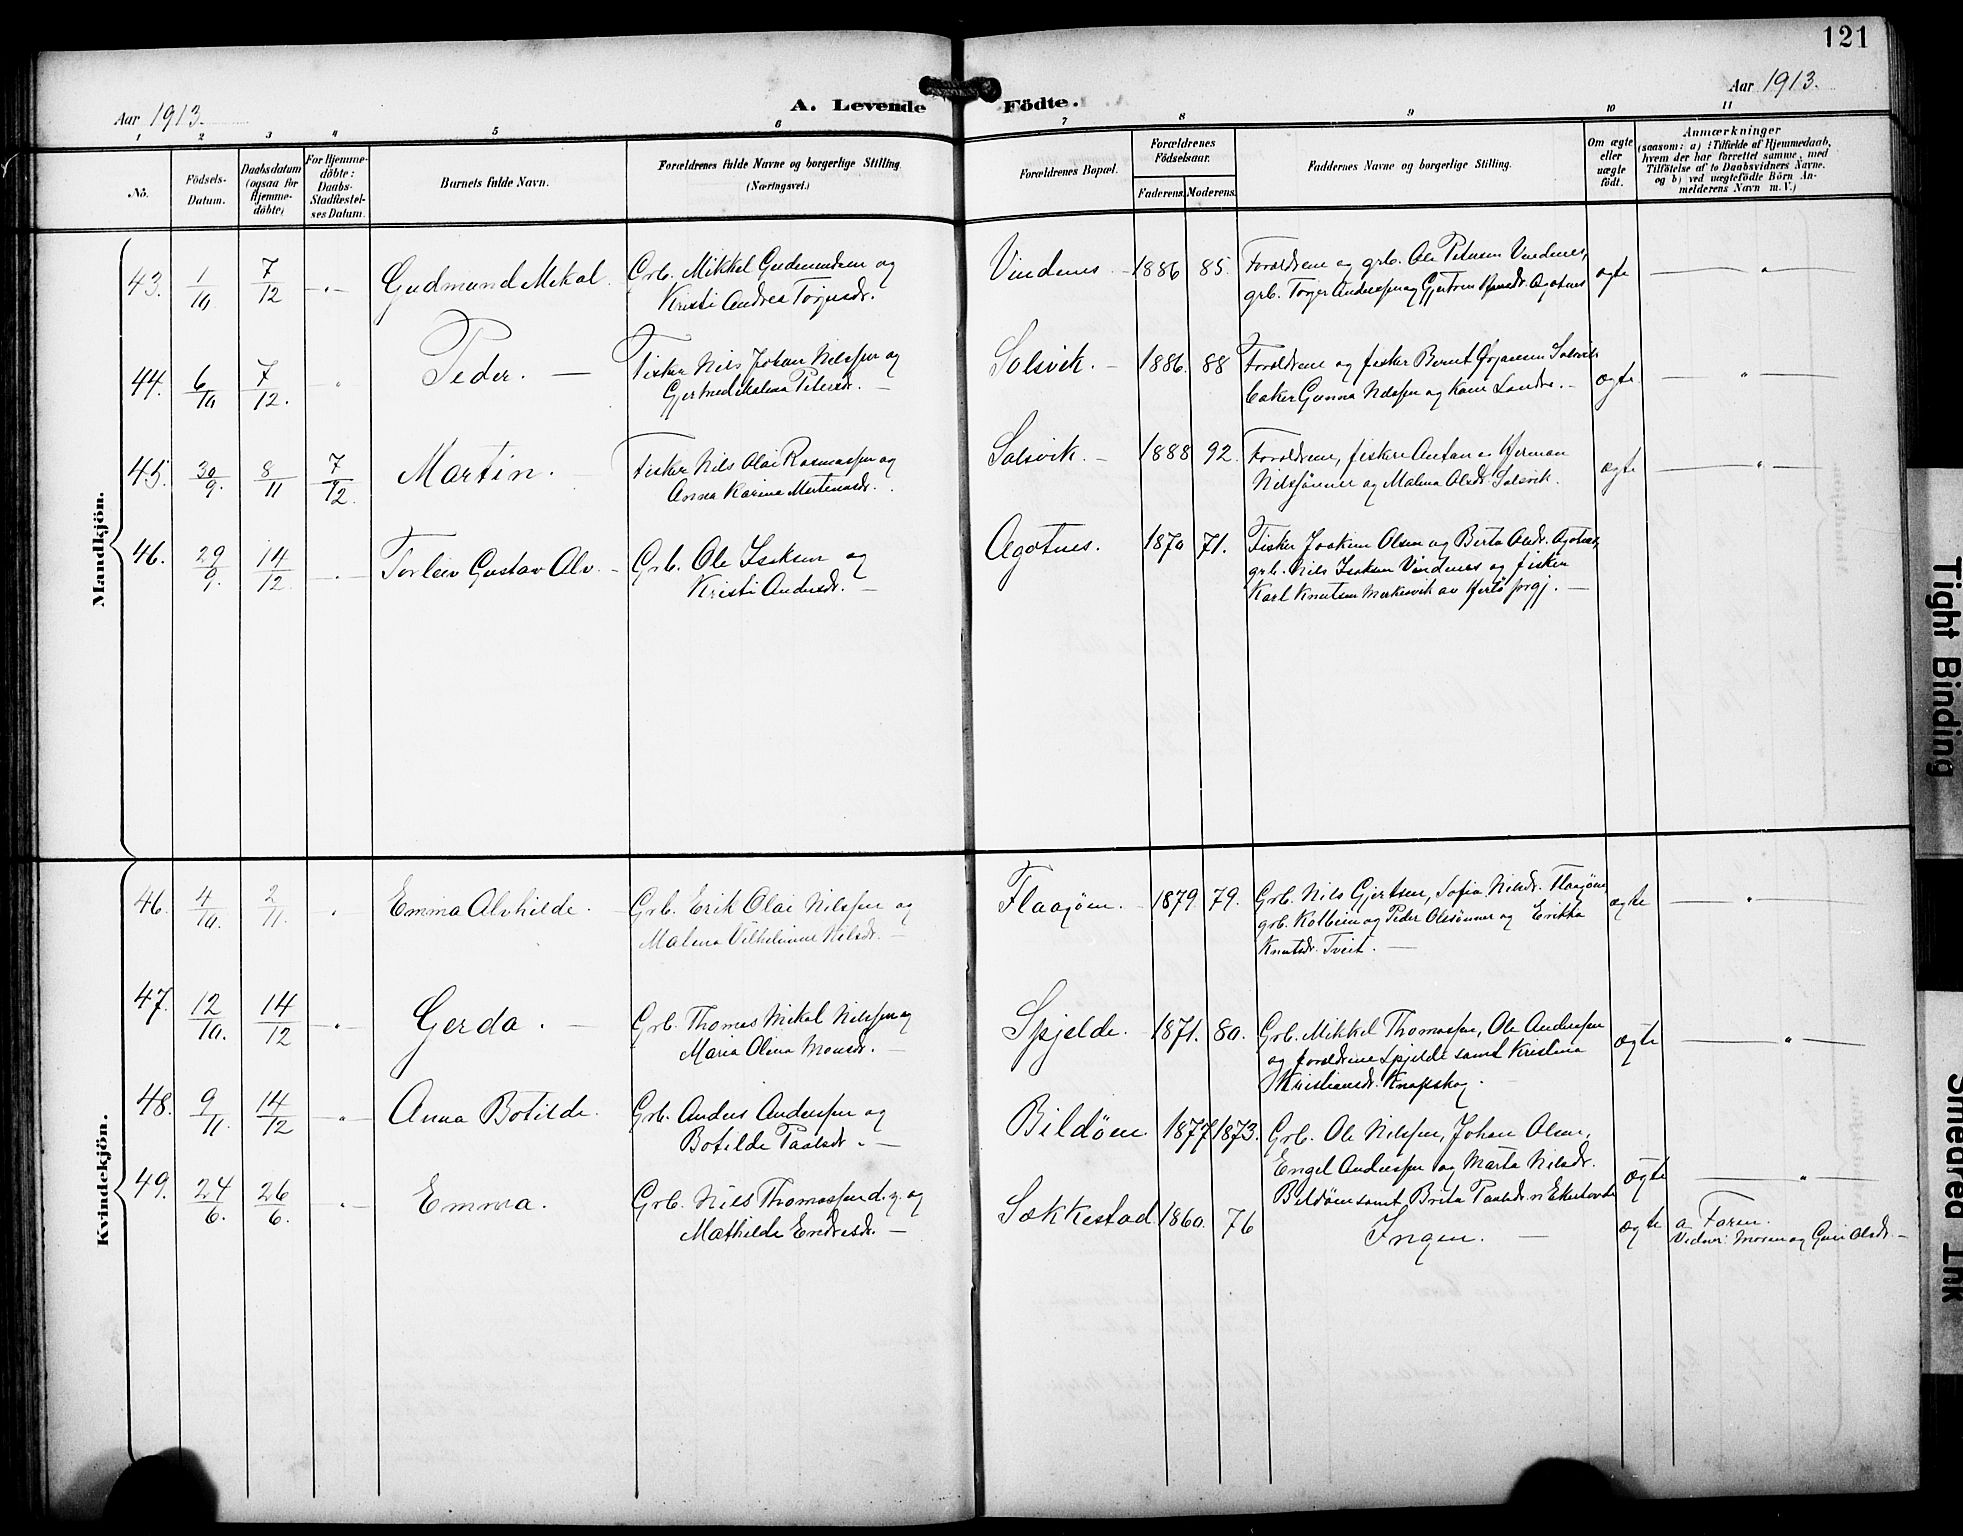 121
Aar 1913.
A. Levende Födte.
Aar 1913.
1 2 3 4 5 6 7 8 9 10 11
No.
Födsels-Datum.
Daabsdatum (ogsaa for Hjemme-döbte)
For Hjemme-döbte: Daabs-Stadfæstel-ses Datum.
Barnets fulde Navn.
Forældrenes fulde Navne og borgerlige Stilling. (Næringsvei.)
Forældrenes Bopæl.
Forældrenes Födselsaar.
Faderens. Moderens.
Faddernes Navne og borgerlige Stilling.
Om ægte eller uægte födt.
Anmærkninger
(saasom: a) i Tilfælde af Hjemmedaab,
hvem der har forrettet samme, med
Tilföielse af to Daabsvidners Navne.
og b) ved uægtefödte Börn An-
melderens Navn m. V.)
Mandkjön.
43. 1/10 7/12 -„- Gudmund Mikal. Grb. Mikkel Gudmundsen og Vindenes 1886 85. Forældrene og grb. Ole Petersen Vindenes, ægte „
Kristi Andrea Torgersdr. grb. Torger Anderssen og Gjertrud Agotnes
44. 6/10 7/12. „ Peder. — Fisker Nils Johan Nilssen og Solsvik. - 1886. 88 Forældrene og fisker Bernt Ørjansen Solsvik ægte „
Gjertrud Malena Petersdr. — Gunna Nilssen og —
45. 30/9. 8/11 7/12. Martin. — Fisker Nils Olai Rasmussen og Solsvik. - 1888 92. Forældrene, fiskere Anton o. Herman ægte „
Anna Karina Martinusdr. Nilssönner og Malena Olsdr. Solsvik.
46. 29/9. 14/12 -„- Torleiv Gustav Alv. - Grb. Ole Isaksen og Agotnes. 1870 71. Fisker Joakim Olsen og Berta Olsdr. Agotnes,
Kristi Andersdr. — grb. Nils Isaksen Vindenes og fisker
Karl Knutsen Merkesvik av Hertö prgj. —
Kvindekjön.
46. 4/10. 2/11. „ Emma Alvhilde. - Grb. Erik Olai Nilssen og Flaagöen. - 1879. 79. Grb. Nils Gjertsen, Sofia Nilsdr. Flaagöen ægte „
Malena Vilhelmine Nilsdr. — grb. Kolbein og Peder Olssönner og Erikka
Knutsdr. Tveit. —
47. 12/10. 14/12 -„- Gerda. — Grb. Thomas Mikal Nilssen og Spjelde. 1871. 80. Grb. Mikkel Thomassen, Ole Anderssen ægte „
Maria Olena Monsdr. — og forældrene Spjelde samt Kristina
Kristiansdr. Knapskog —
48. 9/11. 14/12 -„- Anna Botilde. Grb. Anders Anderssen og Bildöen. 1877 1873. Grb. Ole Nilssen, Johan Olsen,
Botilde Paalsdr. — Engel Anderssen og Marta Nilsdr. ægte „
Bildöen samt Brita Paalsdr.
49. 24/6. 26/6. -„- Emma. Grb. Nils Thomassen d.y. og Sækkestad 1860. 76 Ingen. — ægte a. Faren.
Mathilde Endresdr. — Vidner: Moren og Guri Olsdr. —
Tight Binding
Smeared Ink